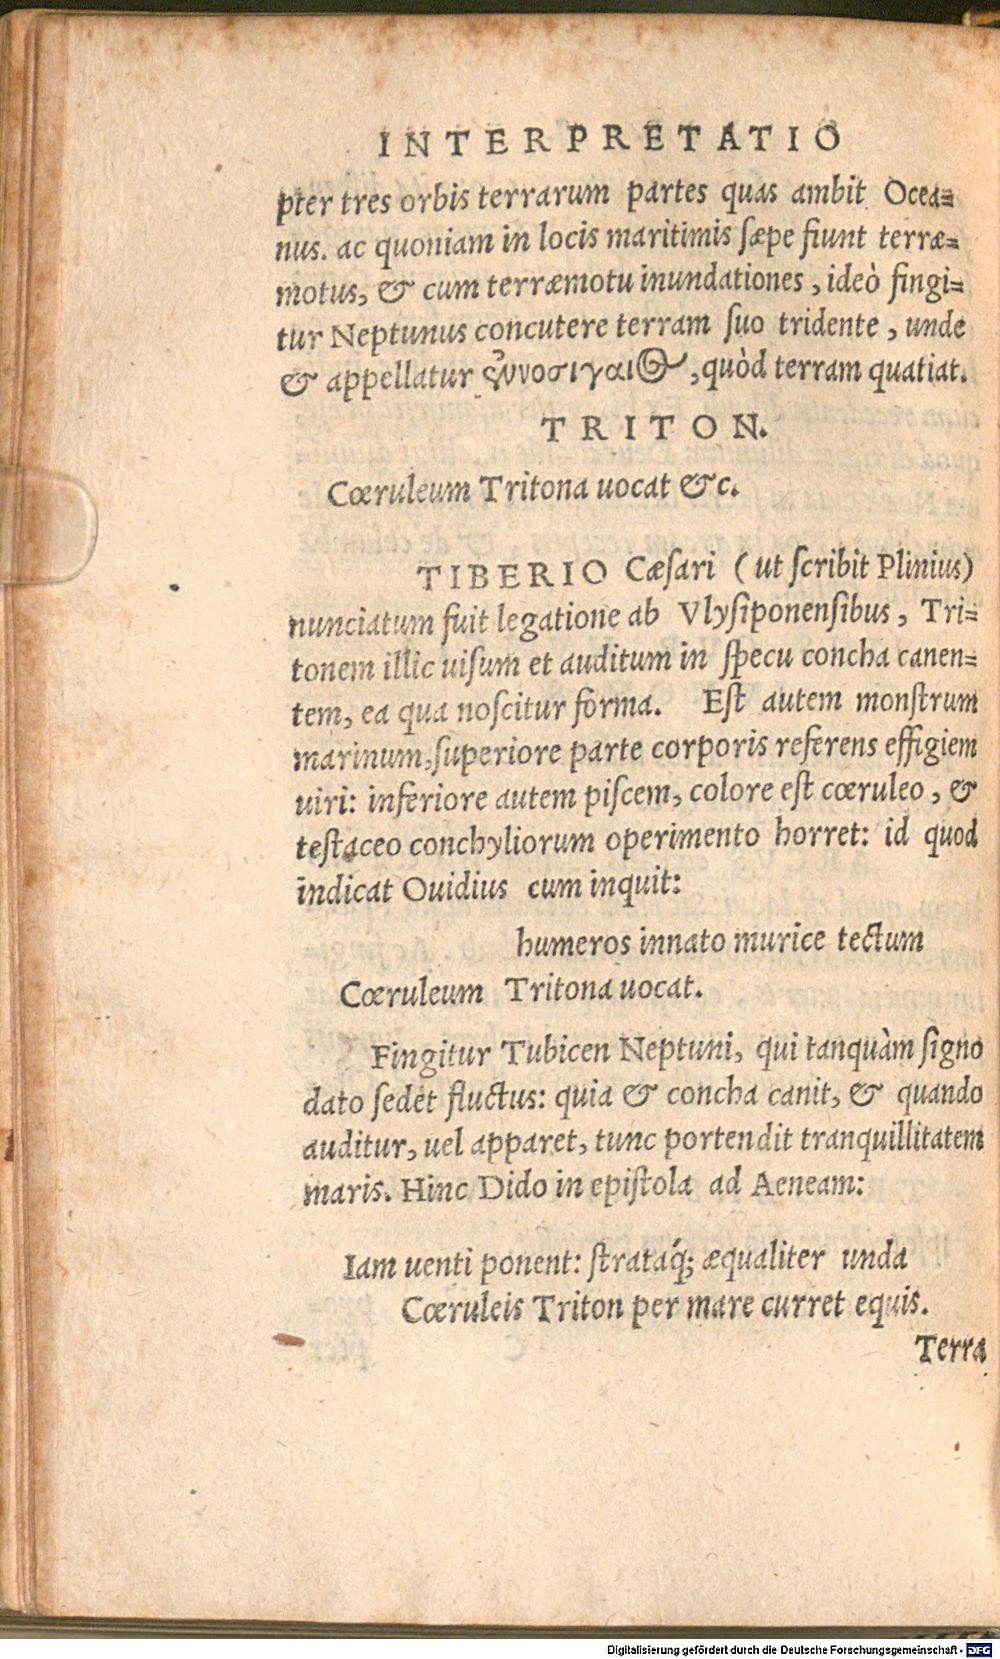 INTERPRETATIO
pter tres orbis terrarum partes quas ambit Ocea=
nus. ac quoniam in locis maritimis sæpe fiunt terræ=
motus, & cum terræmotu inundationes, ideò fingi=
tur Neptunus concutere terram suo tridente, unde
& appellatur ἐννοσιγαιος, quòd terram quatiat.
TRITON.
Cœruleum Tritona uocat &c.
TIBERIO Cæsari (ut scribit Plinius)
nunciatum fuit legatione ab Vlysiponensibus, Tri=
tonem illic uisum et auditum in specu concha canen=
tem, ea qua noscitur forma. Est autem monstrum
marinum, superiore parte corporis referens effigiem
uiri: inferiore autem piscem, colore est cœruleo, &
testaceo conchyliorum operimento horret: id quod
indicat Ouidius cum inquit:
humeros innato murice tectum
Cœruleum Tritona uocat.
Fingitur Tubicen Neptuni, qui tanquàm signo
dato sedet fluctus: quia & concha canit, & quando
auditur, uel apparet, tunc portendit tranquillitatem
maris. Hinc Dido in epistola ad Aeneam:
Iam uenti ponent: strataq́; æqualiter unda
Cœruleis Triton per mare curret equis.
Terra
Digitalisierung gefördert durch die Deutsche Forschungsgemeinschaft - DFG